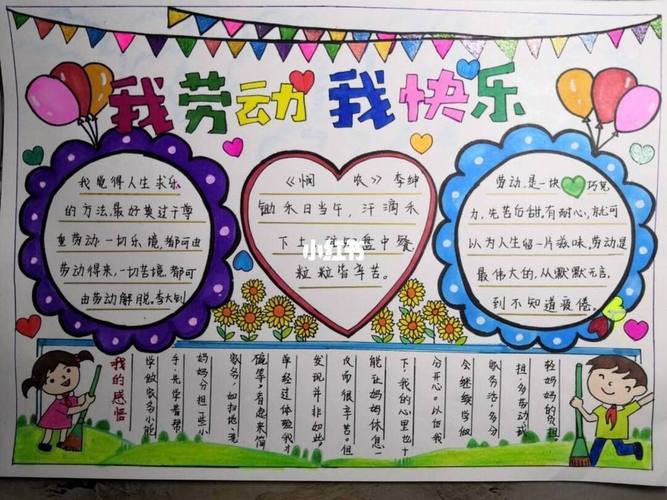 我劳动 我快乐
我觉得人生求乐
的方法,最好莫过于尊
重劳动一切乐境,都可由
劳动得来,一切苦境,都可
由劳动解脱。李大钊
《悯 农》李绅
锄禾日当午,汗滴禾
下土 盘中餐
粒粒皆辛苦。
小红书
劳动,是一块巧克
力,先苦后甜,有耐心,就可
以为人生留一片滋味,劳动是
最伟大的,从默默无言,
到不知道疲倦。
我的感悟
学做家务小能
手,先学着帮
妈妈分担些小
家务,如扫地、洗
碗等。看起来简
单经过体验我才
发现并非如此。
反而很辛苦。但
能让妈妈休息一
下,我的心里也十
分开心。以后我
会继续学做
家务活,多分
担,多劳动,减
轻妈妈的负担